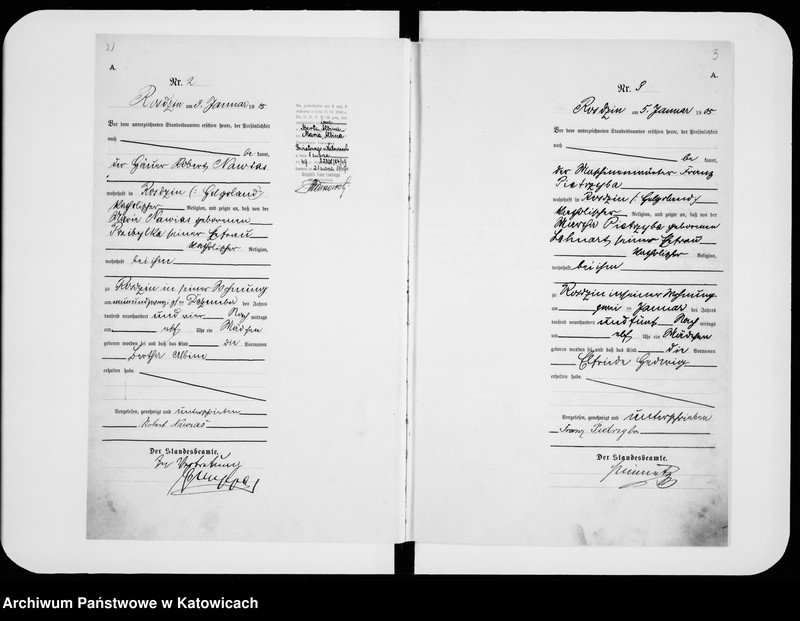 A.
Nr. 2
Rosdzin am 3. Januar 1905
Vor dem unterzeichneten Standesbeamten erschien heute, der Persönlichkeit
nach
be kannt,
der Häuer Robert Nawias
wohnhaft in Rosdzin (: Helgoland)
katholischer Religion, und zeigte an, daß von der
Marie Nawias geborenen
Przibylka seiner Ehefrau
katholischer Religion,
wohnhaft bei ihm
zu Rosdzin in seiner Wohnung
am neunundzwanzigsten Dezember des Jahres
tausend neunhundert und vier Nach mittags
um elf Uhr ein Mädchen
geboren worden sei und daß das Kind die Vornamen
Bertha Albine
erhalten habe.
Vorgelesen, genehmigt und unterschrieben
Robert Nawias
Der Standesbeamte.
In Vertretung
3
A.
Nr. 3
Rosdzin am 5. Januar 1905
Vor dem unterzeichneten Standesbeamten erschien heute, der Persönlichkeit
nach
be kannt,
der Maschinenwärter Franz
Pietrzyba
wohnhaft in Rosdzin (: Helgoland)
katholischer Religion, und zeigte an, daß von der
Martha Pietrzyba geborenen
seiner Ehefrau
katholischer Religion,
wohnhaft bei ihm
zu Rosdzin in seiner Wohnung
am zwei ten Januar des Jahres
tausend neunhundert und fünf Nach mittags
um elf Uhr ein Mädchen
geboren worden sei und daß das Kind die Vornamen
Elfriede Hedwig
erhalten habe.
Vorgelesen, genehmigt und unterschrieben
Franz Pietrzyba
Der Standesbeamte.
Archiwum Państwowe w Katowicach